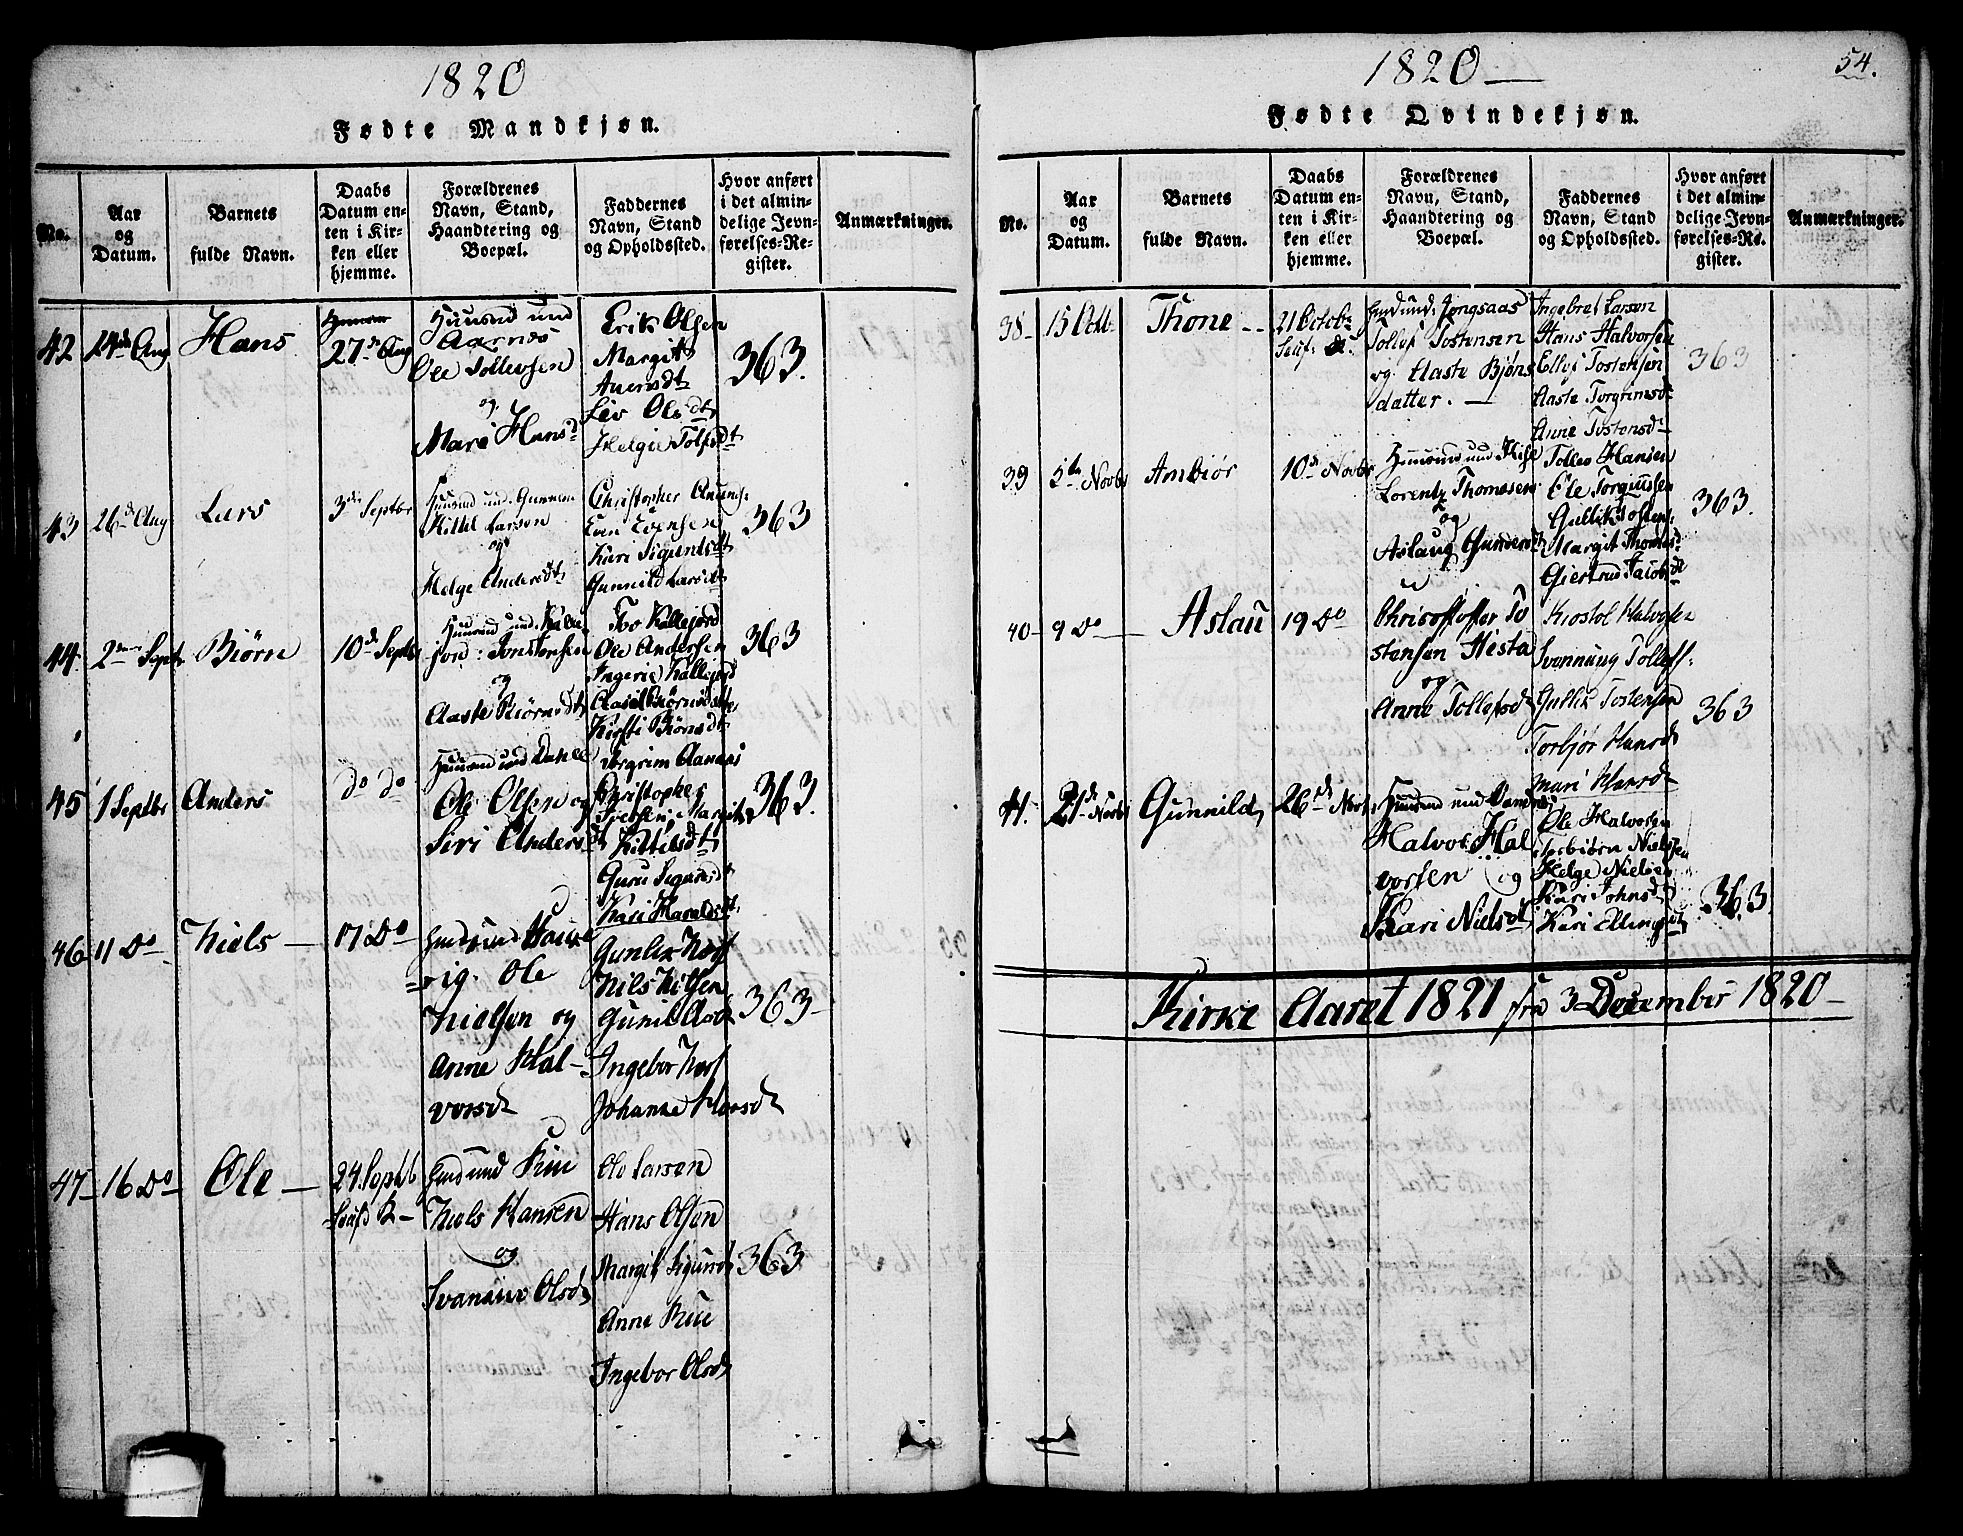 1820
Fødte Mandkjøn.
No.
Aar
og
Datum.
Barnets
fulde Navn.
Daabs
Datum en-
ten i Kir-
ken eller
hjemme.
Forældrenes
Navn, Stand,
Haandtering og
Boepæl.
Faddernes
Navn, Stand
og Opholdssted.
Hvor anført
i det almin-
delige Jevn-
førelses-Re-
gister.
Anmærkninger.
42
24de Aug
Hans
27de Aug
Huusmd und
Aarnæs
Ole Tollevsen
og
Mari Hansd
Erik Olsen
Margit
Liv Olsdt
Helgie Tolfsdt
363.
43
26de Aug
Lars
3die Septbr
Huusmd und.
Kittel Larson
og
Helge Andersdt
Christopher
Even Evensen
Kari Sigurdsdt
Gunnild Larsdt
363
44
2den Septr
Biørn
10de Septbr
Huusmd und. Kalle-
jord:
og
Aaste Biørnsdt
Ivo Kallejord
Ole Andersen
Ingerie Kallejord
Aasil Biørnsdatter
Kirsti Biörnsdt
363
45
1 Septbr
Anders
do do
Huusmd und Dahle
Ole Olsen og
Siri Andersdt
Torgrim
Christopher
Iversen: Margit
Kittilsdt
Guru Sigurdsdt
Kari Haraldsdt
363.
46
11 Do
Niels
17 Do
Huusmd und
rig. Ole
Nielsen og
Anne Hal-
vorsdt
Nils Nilsen
Gunil
Ingebor
Johanne
363
47
16 Do
Ole
24. Septb
Huusmd und
Niels Hansen
og
Olsdt
Ole Larsen
Hans Olsen
Margit Sigurdsdt
Anne
Ingebor Olsdt
363
1820
54.
Fødte Qvindekjøn.
No.
Aar
og
Datum.
Barnets
fulde Navn.
Daabs
Datum en-
ten i Kir-
ken eller
hjemme.
Forældrenes
Navn, Stand,
Haandtering og
Boepæl.
Faddernes
Navn, Stand
og Opholdssted.
Hvor anført
i det almin-
delige Jevn-
førelses-Re.
gister.
Anmærkninger.
38
15 Octb
Thone
21 Octob:
Huusmd und: Jongsaas
Tollef Tostensen
og Aaste Bjøns
datter.
Ingebret Larsen
Hans Halvorsen
Ellef Tostensen
Aaste Torgrimsdt
Anne Tostensdt
363
39
5te Novbr
Ambiør
10de Novbr
Huusmd und
Lorentz Thomesen
og
Aslaug Gundersdt
Tollev Hansen
Ole Torgussen
Gullik Tostens:
Margit Thomasdt
Giertrud Jacobsdt
363.
40
9 Do
Aslau
19 Do
Christoffer To
stensen Hesta
og
Anne Tollefsdt
Kiostol Halvorsen
Svennung Tollefs:
Gullik Tostensen
Torbjør Hansdt
Mari Hansdt
363
41.
21de Novbr
Gunnild
26de Novbr
Huusmd und
Halvor Hal
vorsen og
Kari Nielsdt
Ole Halvorsen
Torbiörn Nielssen
Helge Nielsen
Kari Johnsdt
Kari Ellingsdt
363
Kirke Aaret 1821 fra 3 December 1820